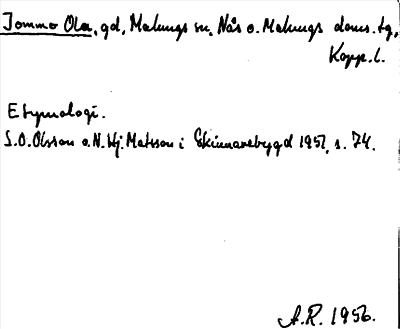 Jommo Ola, gd, Malungs sn, Nås o. Malungs doms. tg,
Kopp. l.
Etymologi.
S.O. Olsson o. N. Hj. Matsson i Skinnarebygd 1951, s. 74.
A.R. 1956.